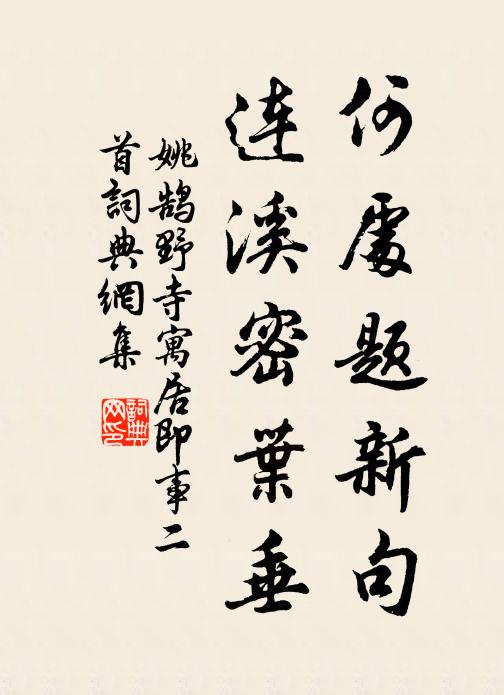 何處題新句
連溪密葉垂
姚鵠野寺寓居即事二
首詞典網集
詞典
网印